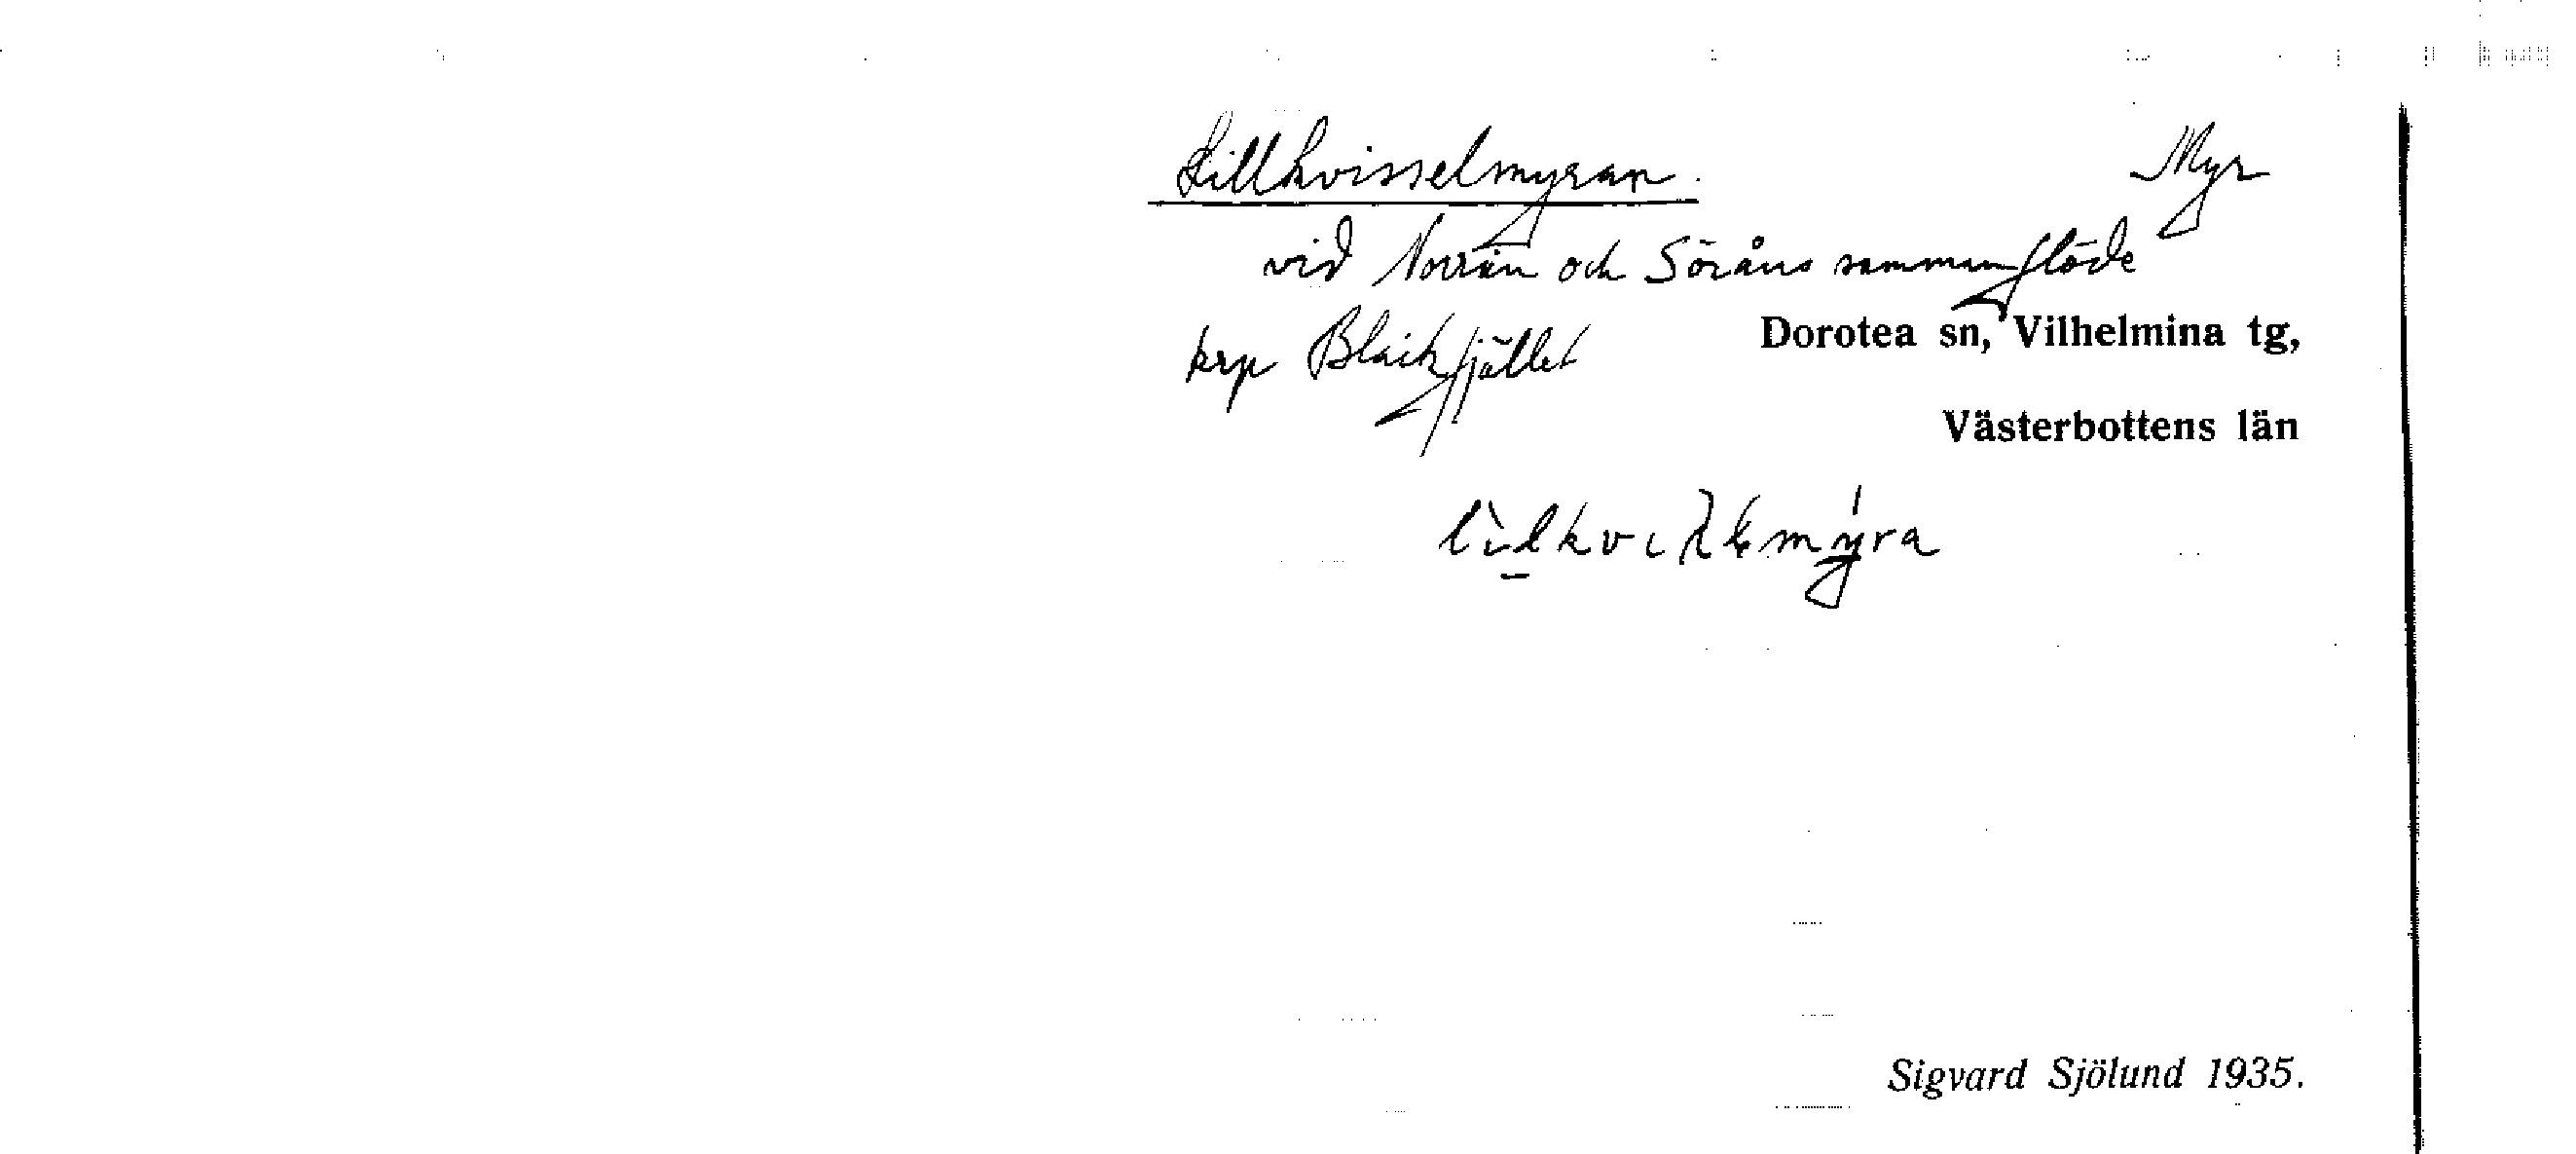 Lillkvisselmyran. Myr
vid Norrån och Söråns sammanflöde
krp Blaikfjället
Dorotea sn, Vilhelmina tg,
Västerbottens län
Sigvard Sjölund 1935.